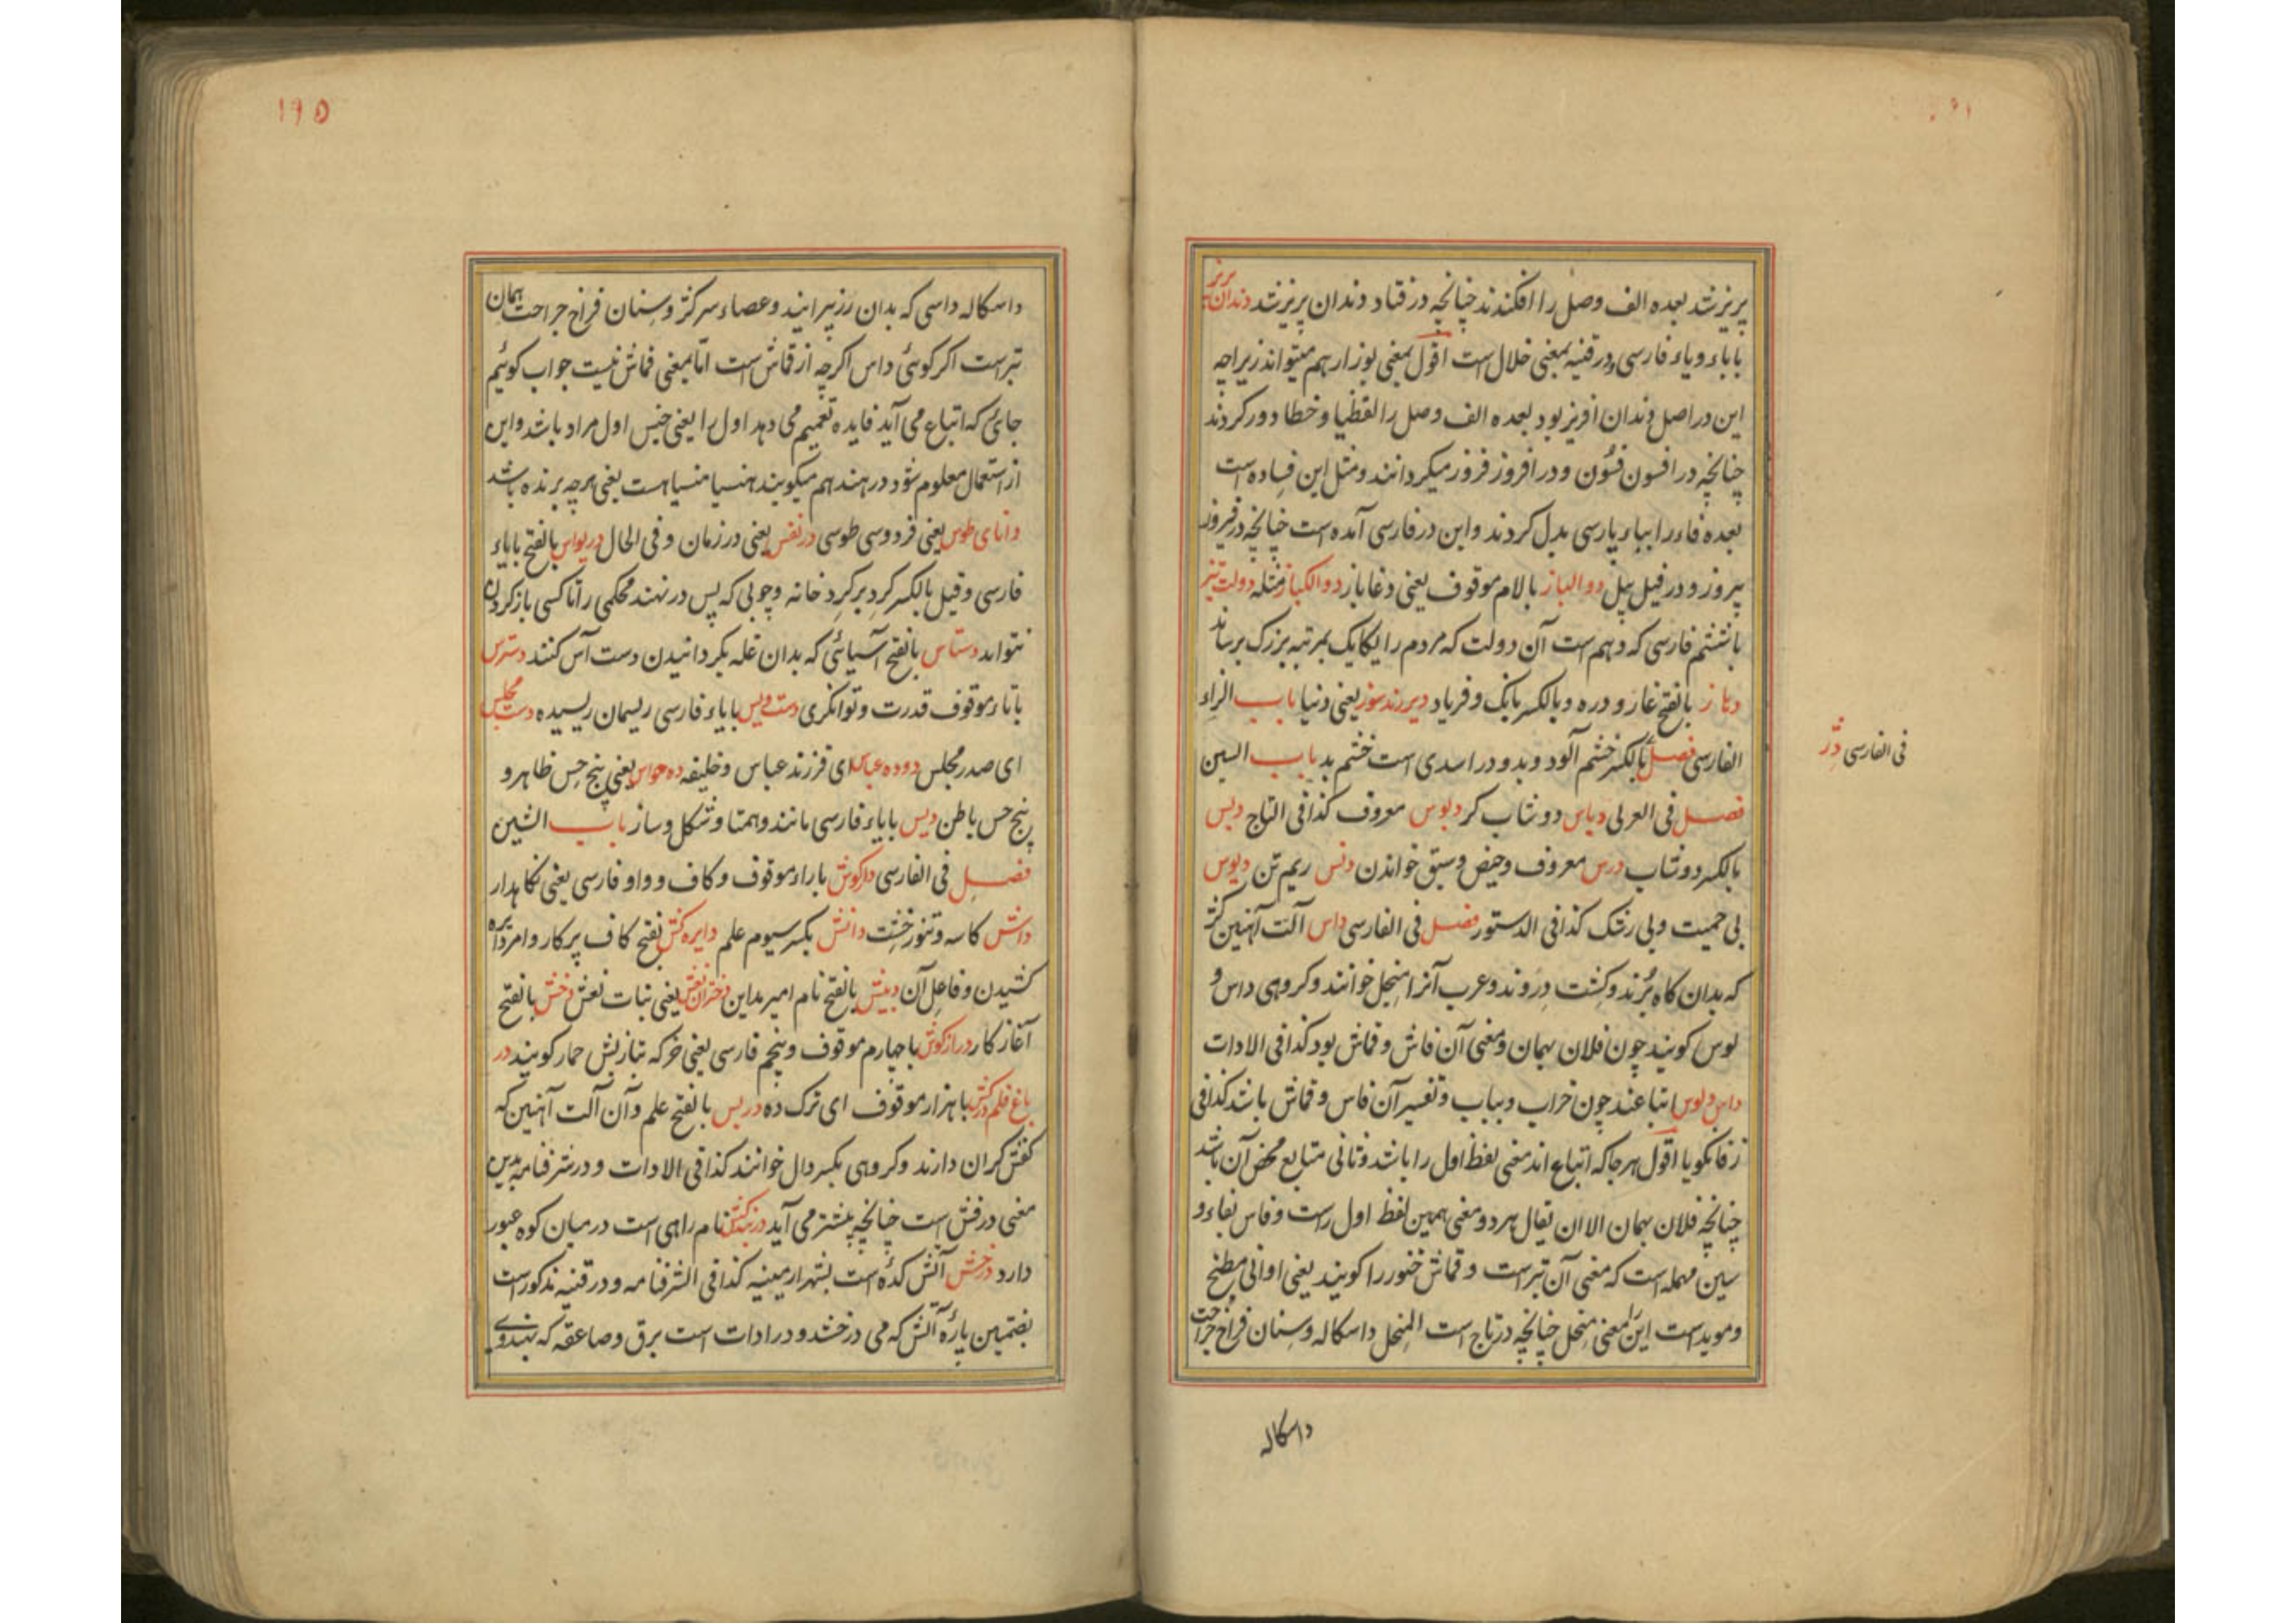 پریزند بعده الف وصل را افکندند چنانچه در قتاد دندان پریزند دندان پریز
با باء و یاء فارسی و در قنیه بمعنی خلال است اقول بمعنی بوزار هم میتواند زیراچه
این در اصل دندان افریز بود بعده الف وصل را لفظیا و خطا دور کردند
چنانچه در افسون فسون و در افروز فروز میکردانند و مثل این فساده است
بعده فاء را بباء پارسی بدل کردند و این در فارسی آمده است چنانچه در فیروز
پیروز و در فیل پیل دوالباز بالام موقوف یعنی دغاباز دوالکباز مثله دولت تیز
با ششم فارسی که دهم است آن دولت که مردم را یکایک بمرتبه بزرک برساند
دهاز بالفتح غار و دره و بالکسر بانک و فریاد دیر رند سوز یعنی دنیا باب الزاء
الفارسی فصل بالکسر خشم آلود و بد و در اسدی است خشم بد باب السین
فی الفارسی دژ
فصل فی العربی دباس دوشاب کر دبوس معروف کذا فی التاج دبس
بالکسر دوشاب درس معروف و حیض و سبق خواندن دنس ریم تن دیوس
بی حمیت و بی رشک کذا فی الدستور فصل فی الفارسی داس آلت آهنین کژ
که بدان کاه برند و کشت دروند و عرب آنرا منجل خوانند و کروهی داس و
لوس کویند چون فلان بهمان و معنی آن فاش و قماش بود کذا فی الادات
داس و لوس اتباعند چون خراب و یباب و تفسیر آن فاس و قماش باشد کذا فی
زفانکویا اقول هرجا که اتباع اند معنی لفظ اول را باشد و ثانی متابع محض آن باشد
چنانچه فلان بهمان الا ان یقال هر دو معنی همین لفظ اول راست و فاس بفاء و
سین مهمله است که معنی آن تبر است و قماش خنور را کویند یعنی اوانی مطبخ
و موید است این معنی را منجل چنانچه در تاج است المنجل داسکاله و سنان فراخ جراحت
داسکاله
۱۹۵
داسکاله داسی که بدان رز پیرایند و عصاء سر کژ و سنان فراخ جراحت همان
تبر است اکر کوئی داس اکرچه از قماش است اما بمعنی قماش نیست جواب کوئیم
جائی که اتباع می آید فایده تعمیم می دهد اول را یعنی جنس اول مراد باشد و این
از استعمال معلوم شود در هند هم میکویند هنسیا منسیا هست یعنی هرچه برنده باشد
دانای طوس یعنی فردوسی طوسی در نفس یعنی در زمان و فی الحال دریواس بالفتح با یاء
فارسی و قیل بالکسر کرد بر کرد خانه و چوبی که پس در نهند محکمی را تا کسی باز کردن
نتواند دستاس بالفتح آسیائی که بدان غله بکردانیدن دست آس کنند دسترس
با تاء موقوف قدرت و توانکری دست ویس با یاء فارسی ریسمان ریسیده دست مجلس
ای صدر مجلس دوده عباس ای فرزند عباس و خلیفه ده حواس یعنی پنج حس ظاهر و
پنج حس باطن دیس با یاء فارسی مانند و همتا و شکل و ساز باب الشین
فصل فی الفارسی دارکوش با راء موقوف و کاف و واو فارسی یعنی نکاهدار
داش کاسه و تنور خشت دانش بکسر سیوم علم دایره کش بفتح کاف پرکار و امر دایره
کشیدن و فاعل آن دبیش بالفتح نام امیر مداین دختران نعش یعنی بنات نعش دخش بالفتح
آغاز کار دراز کوش با چهارم موقوف و پنجم فارسی یعنی خر که بتازیش حمار کویند در
باغ قلم درکش با هزار موقوف ای ترک ده دربس بالفتح علم و آن آلت آهنین که
کفش کران دارند و کروهی بکسر دال خوانند کذا فی الادات و در شرفنامه بدین
معنی درفش است چنانچه پیشتر می آید دربندکش نام راهی است در میان کوه عبور
دارد درخش آتش کده است بشهر ارمینیه کذا فی الشرفنامه و در قنیه مذکور است
بضمتین پارهٔ آتش که می درخشد و در ادات است برق و صاعقه که بهندوی